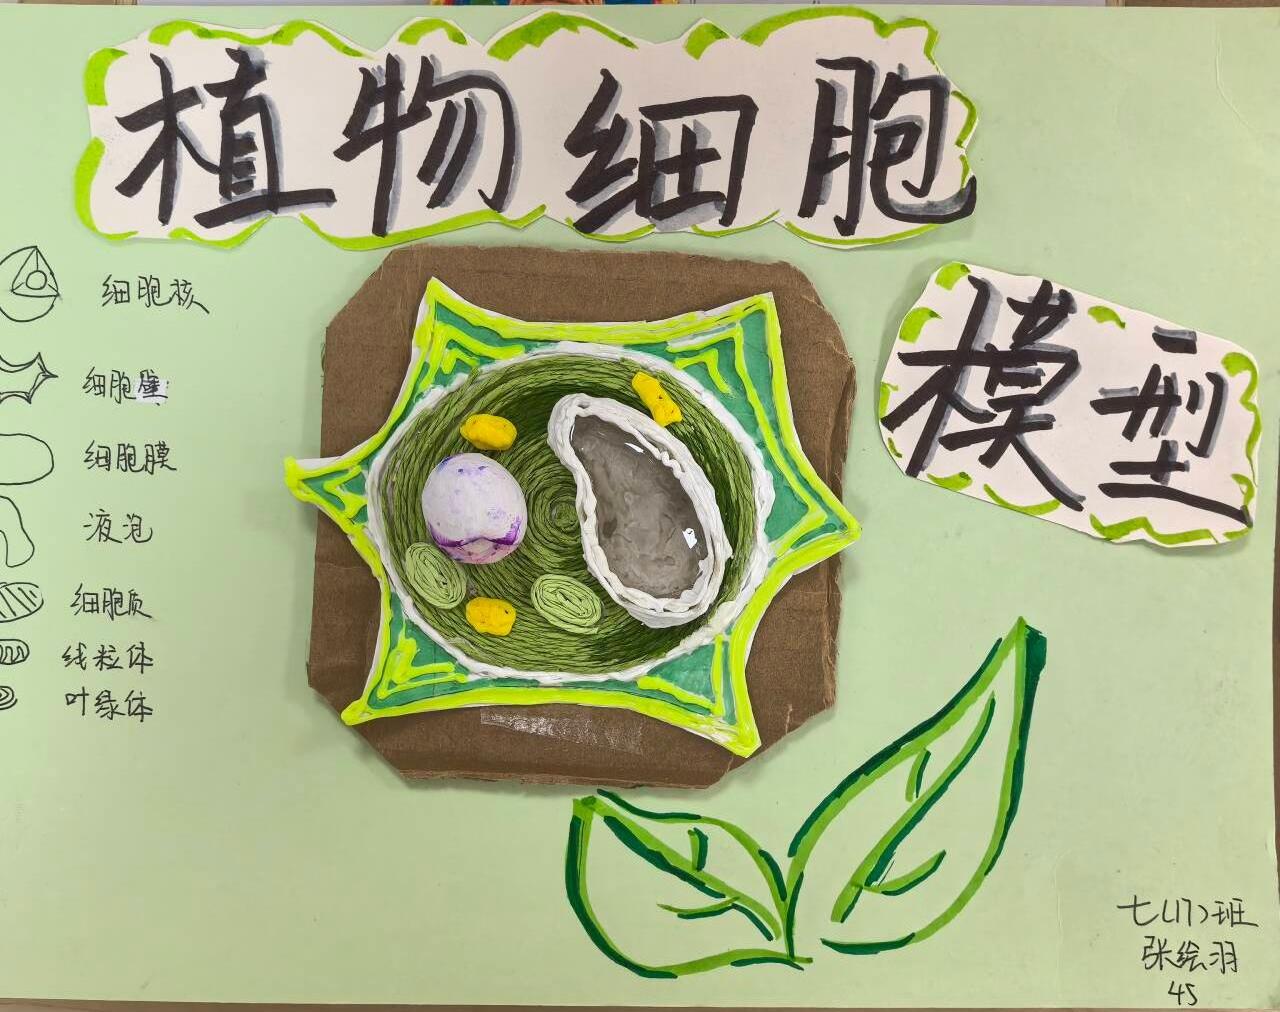 植物细胞
模型
细胞核
细胞壁
细胞膜
液泡
细胞质
线粒体
叶绿体
七(17)班
张绘羽
45